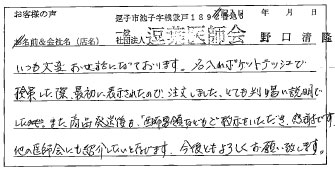 お客様の声
逗子市池子字桟敷戸1892
年 月 日
名前&会社名(店名) 一般社団法人 逗葉医師会 野口清隆
いつも大変お世話になっております。名入れポケットナッシュで
検索した際、最初に表示されたので、注文しました。とても判り易い説明で
した。また商品発送後も、
他の医師会にも紹介したいと存じます。今後ともよろしくお願い致します。